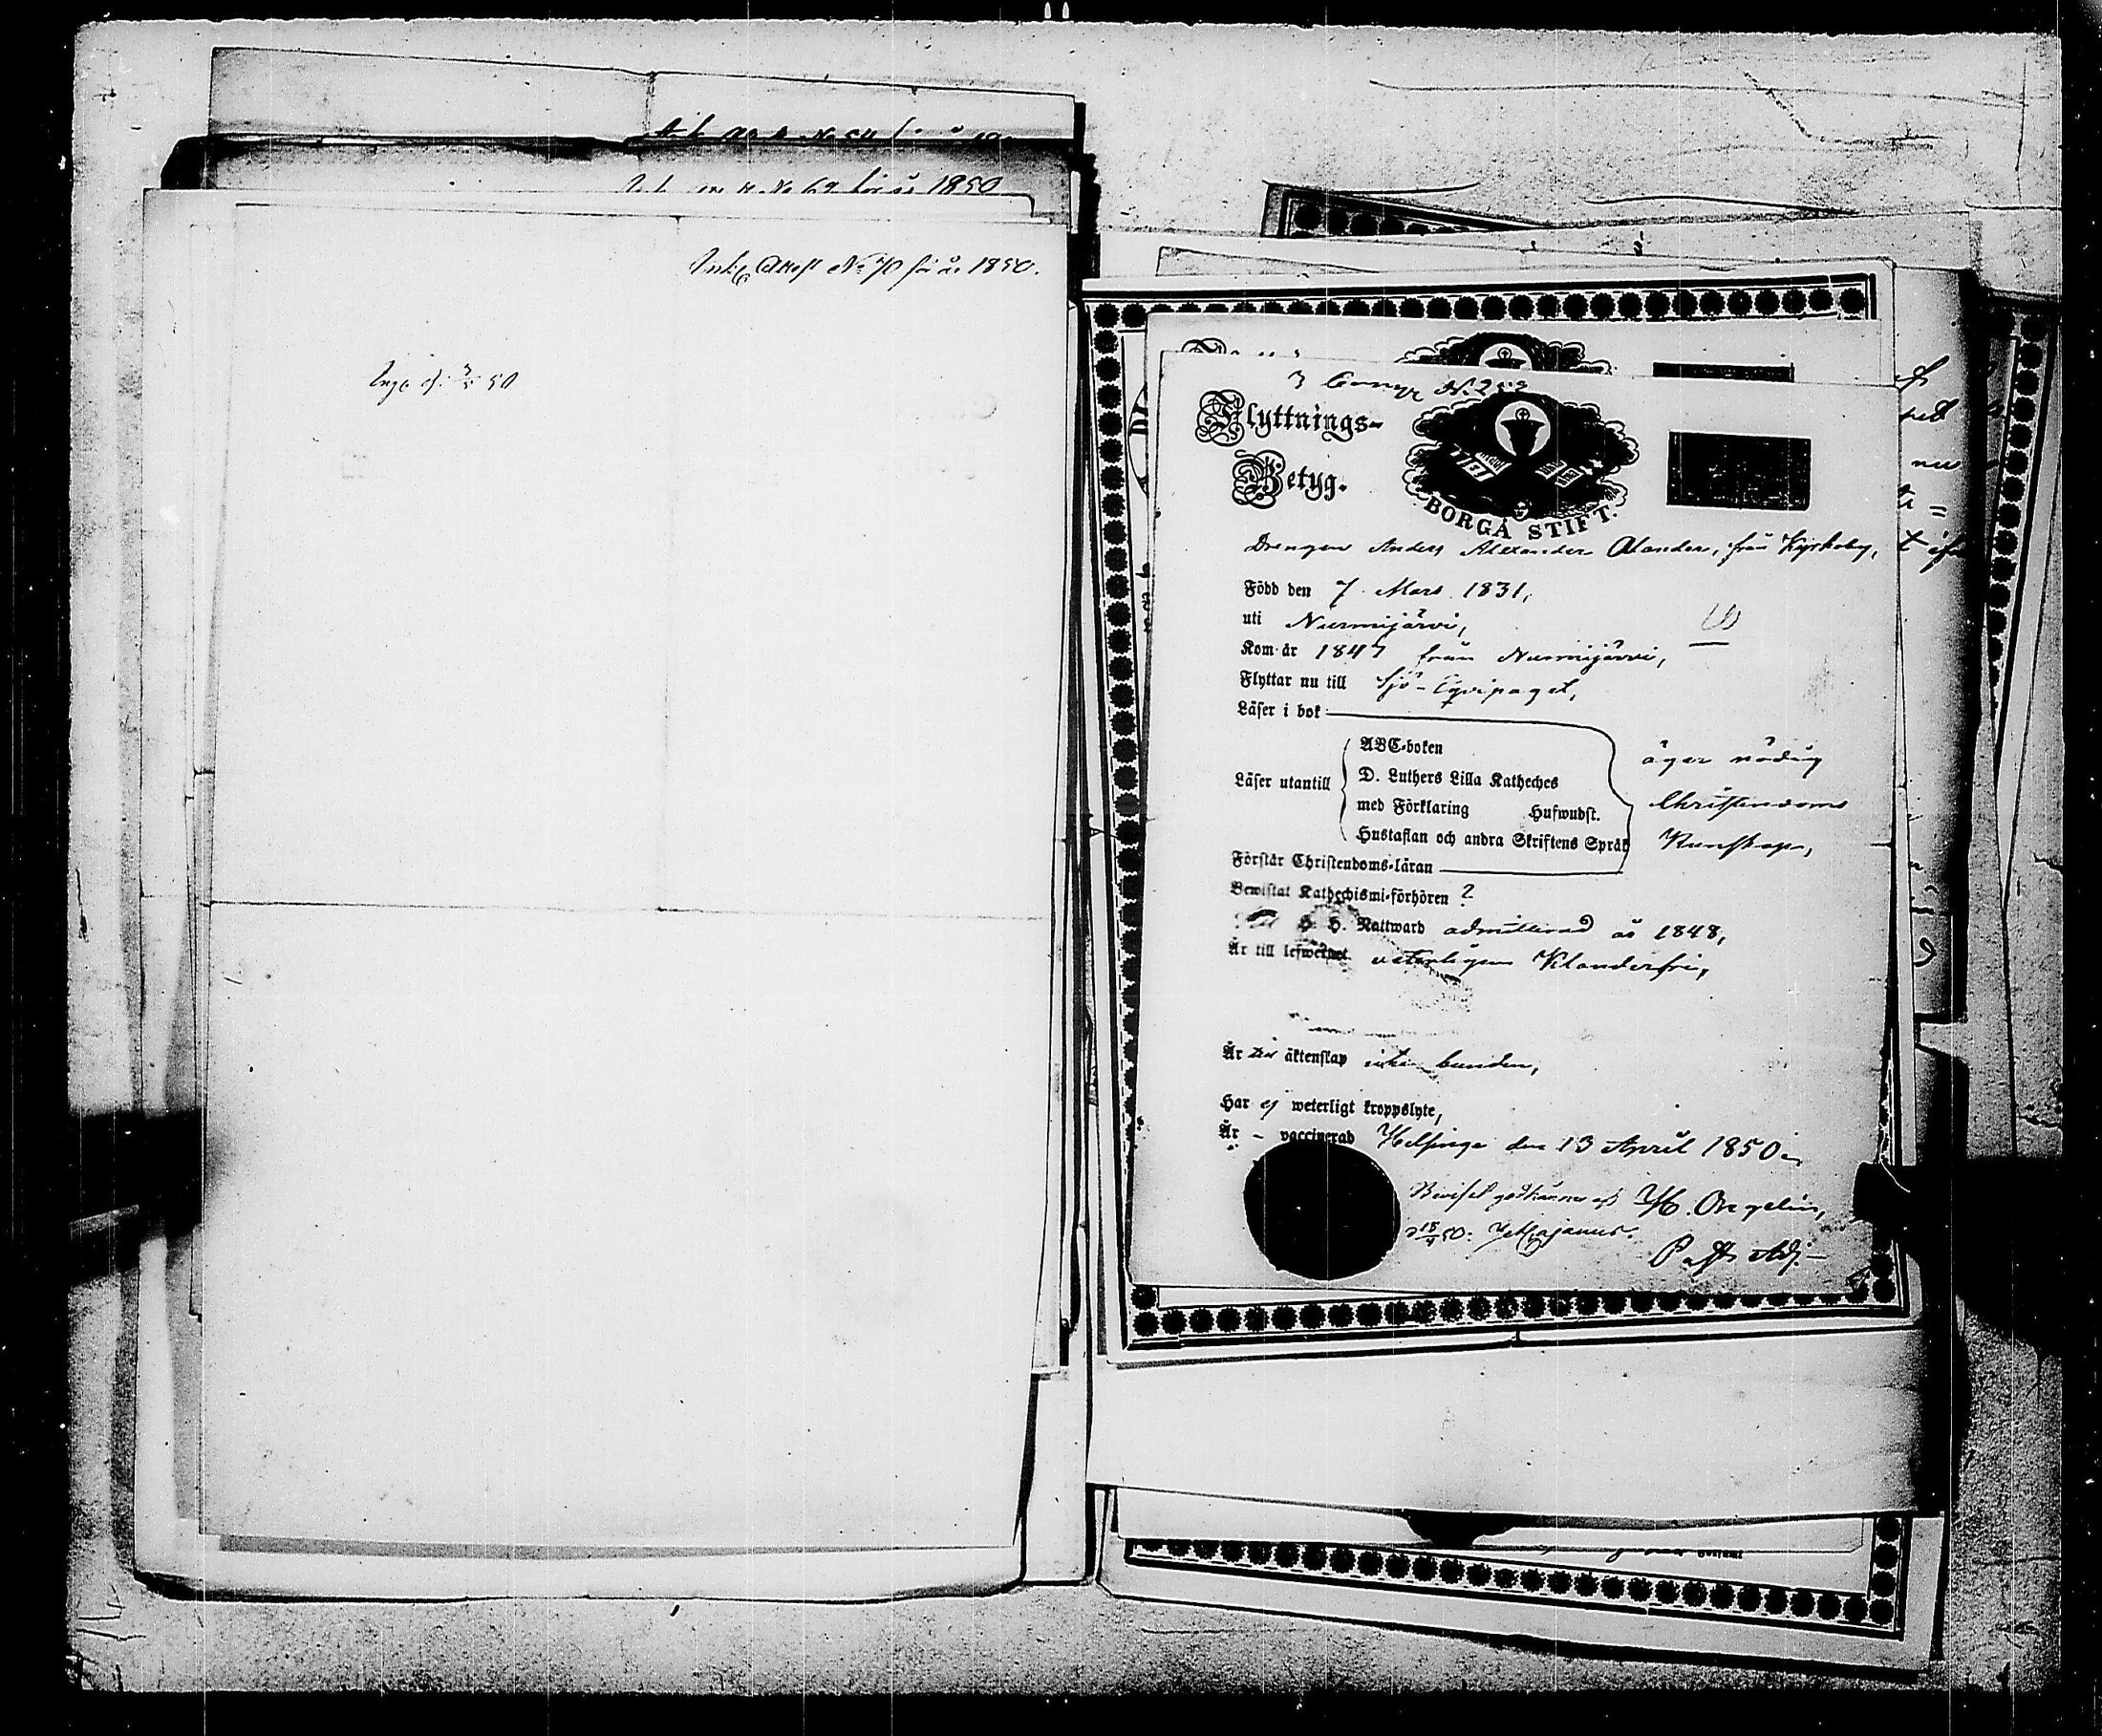 för år 1850
Ink. Attest No 70 för år 1850.
50
3 Compx N. 253
Flyttnings-
Betyg.
BORGÅ STIFT.
Drengen Anders Alexander Alander, från Kyrkoby,
Född den 7 Mars 1831,
uti Nurmijärvi,
Kom år 1847 från Nurmijärvi,
Flyttar nu till Sjö-Eqvipaget,
Läser i bok
ABC-boken
D. Luthers Lilla Katheches
Läser utantill
med Förklaring Hufwudst.
Hustaflan och andra Skriftens Språk
äger nödig
Christendoms
Kunskap,
Förstår Christendoms-läran
Bewistat Kathechismi-förhören ?
H. Nattward admitterad år 1848,
Är till lefwernet veterligen klanderfri,
Är till äktenskap icke bunden,
Har ej weterligt kroppslyte,
Är - vaccinerad Helsinge den 13 April 1850.
Beviset godkännes af H.
Past. Adj.